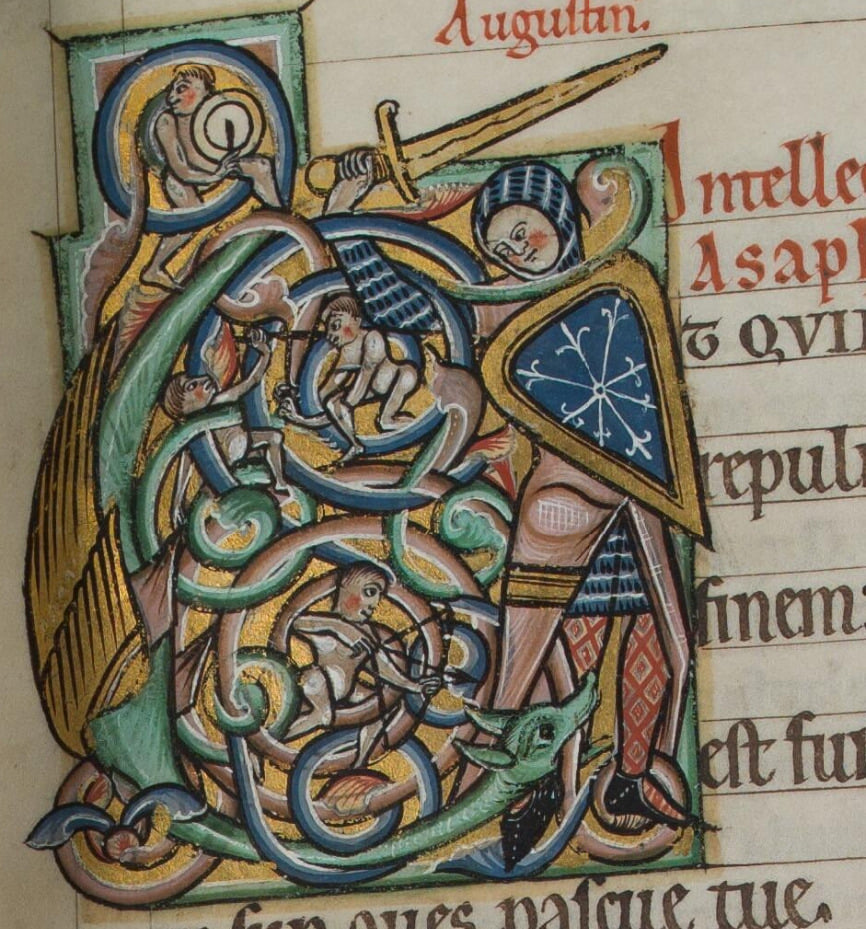 Augustin.
Intellec
Asaph
T QVI
repuli
finem
est fur
oues pascue tue.